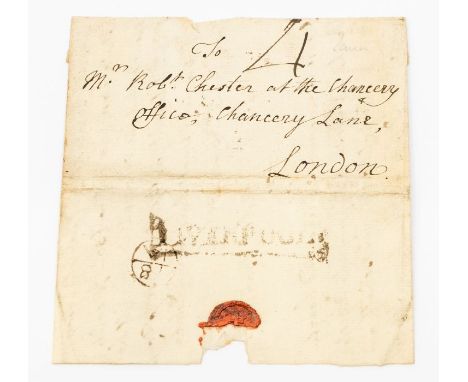 To 4
Mr. Robt. Chester at the Chancery
Office, Chancery Lane,
London.
LIVERPOOL
8